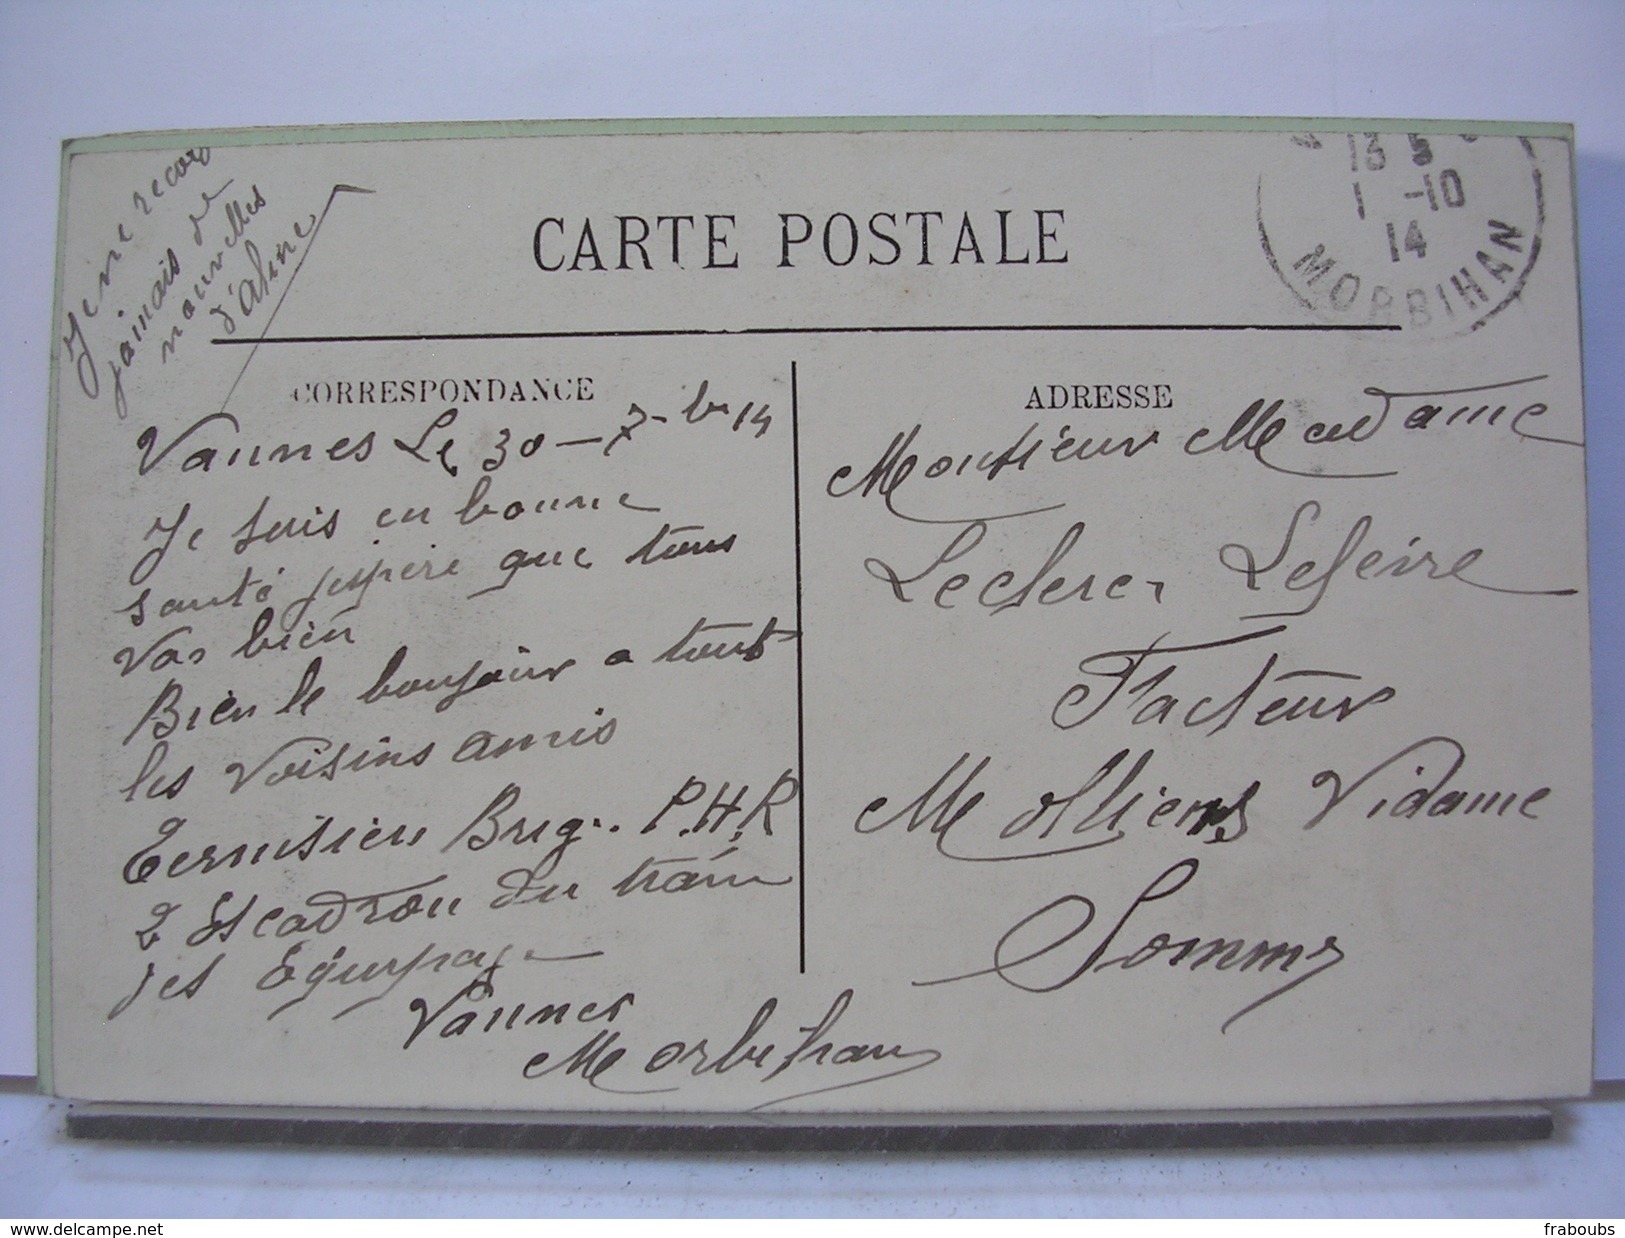 Je ne recois
jamais de
nouvelles
d'Aline
CARTE POSTALE
13 5
1 -10
14
MORBIHAN
CORRESPONDANCE
Vannes Le 30 - 7bre 14
Je suis en bonne
santé jespère que tous
vas bien
Bien le bonjour a tout
les voisins amis
Brig. P.H.R
2 Escadron du train
des Equipage
Vannes
Morbihan
ADRESSE
Monsieur Madame
Leclerc Lefeivre
Facteur
Molliens Vidame
Somme
delcampe.net
fraboubs